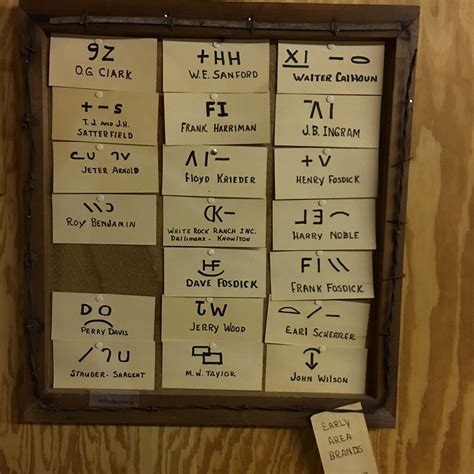 9Z
O.G. CLARK
+HH
W.E. SANFORD
XI
WALTER CALHOUN
+-S
T.J. AND J.H.
SATTERFIELD
FI
FRANK HARRIMAN
J.B. INGRAM
JETER ARNOLD
FLOYD KRIEDER
+V
HENRY FOSDICK
ROY BENJAMIN
CK-
WHITE ROCK RANCH INC.
DALLIMORE - KNOWLTON
HARRY NOBLE
HF
DAVE FOSDICK
FI\\
FRANK FOSDICK
DO
PERRY DAVIS
JERRY WOOD
EARL SCHERRER
STAUDER-SARGENT
M.W. TAYLOR
JOHN WILSON
EARLY
AREA
BRANDS